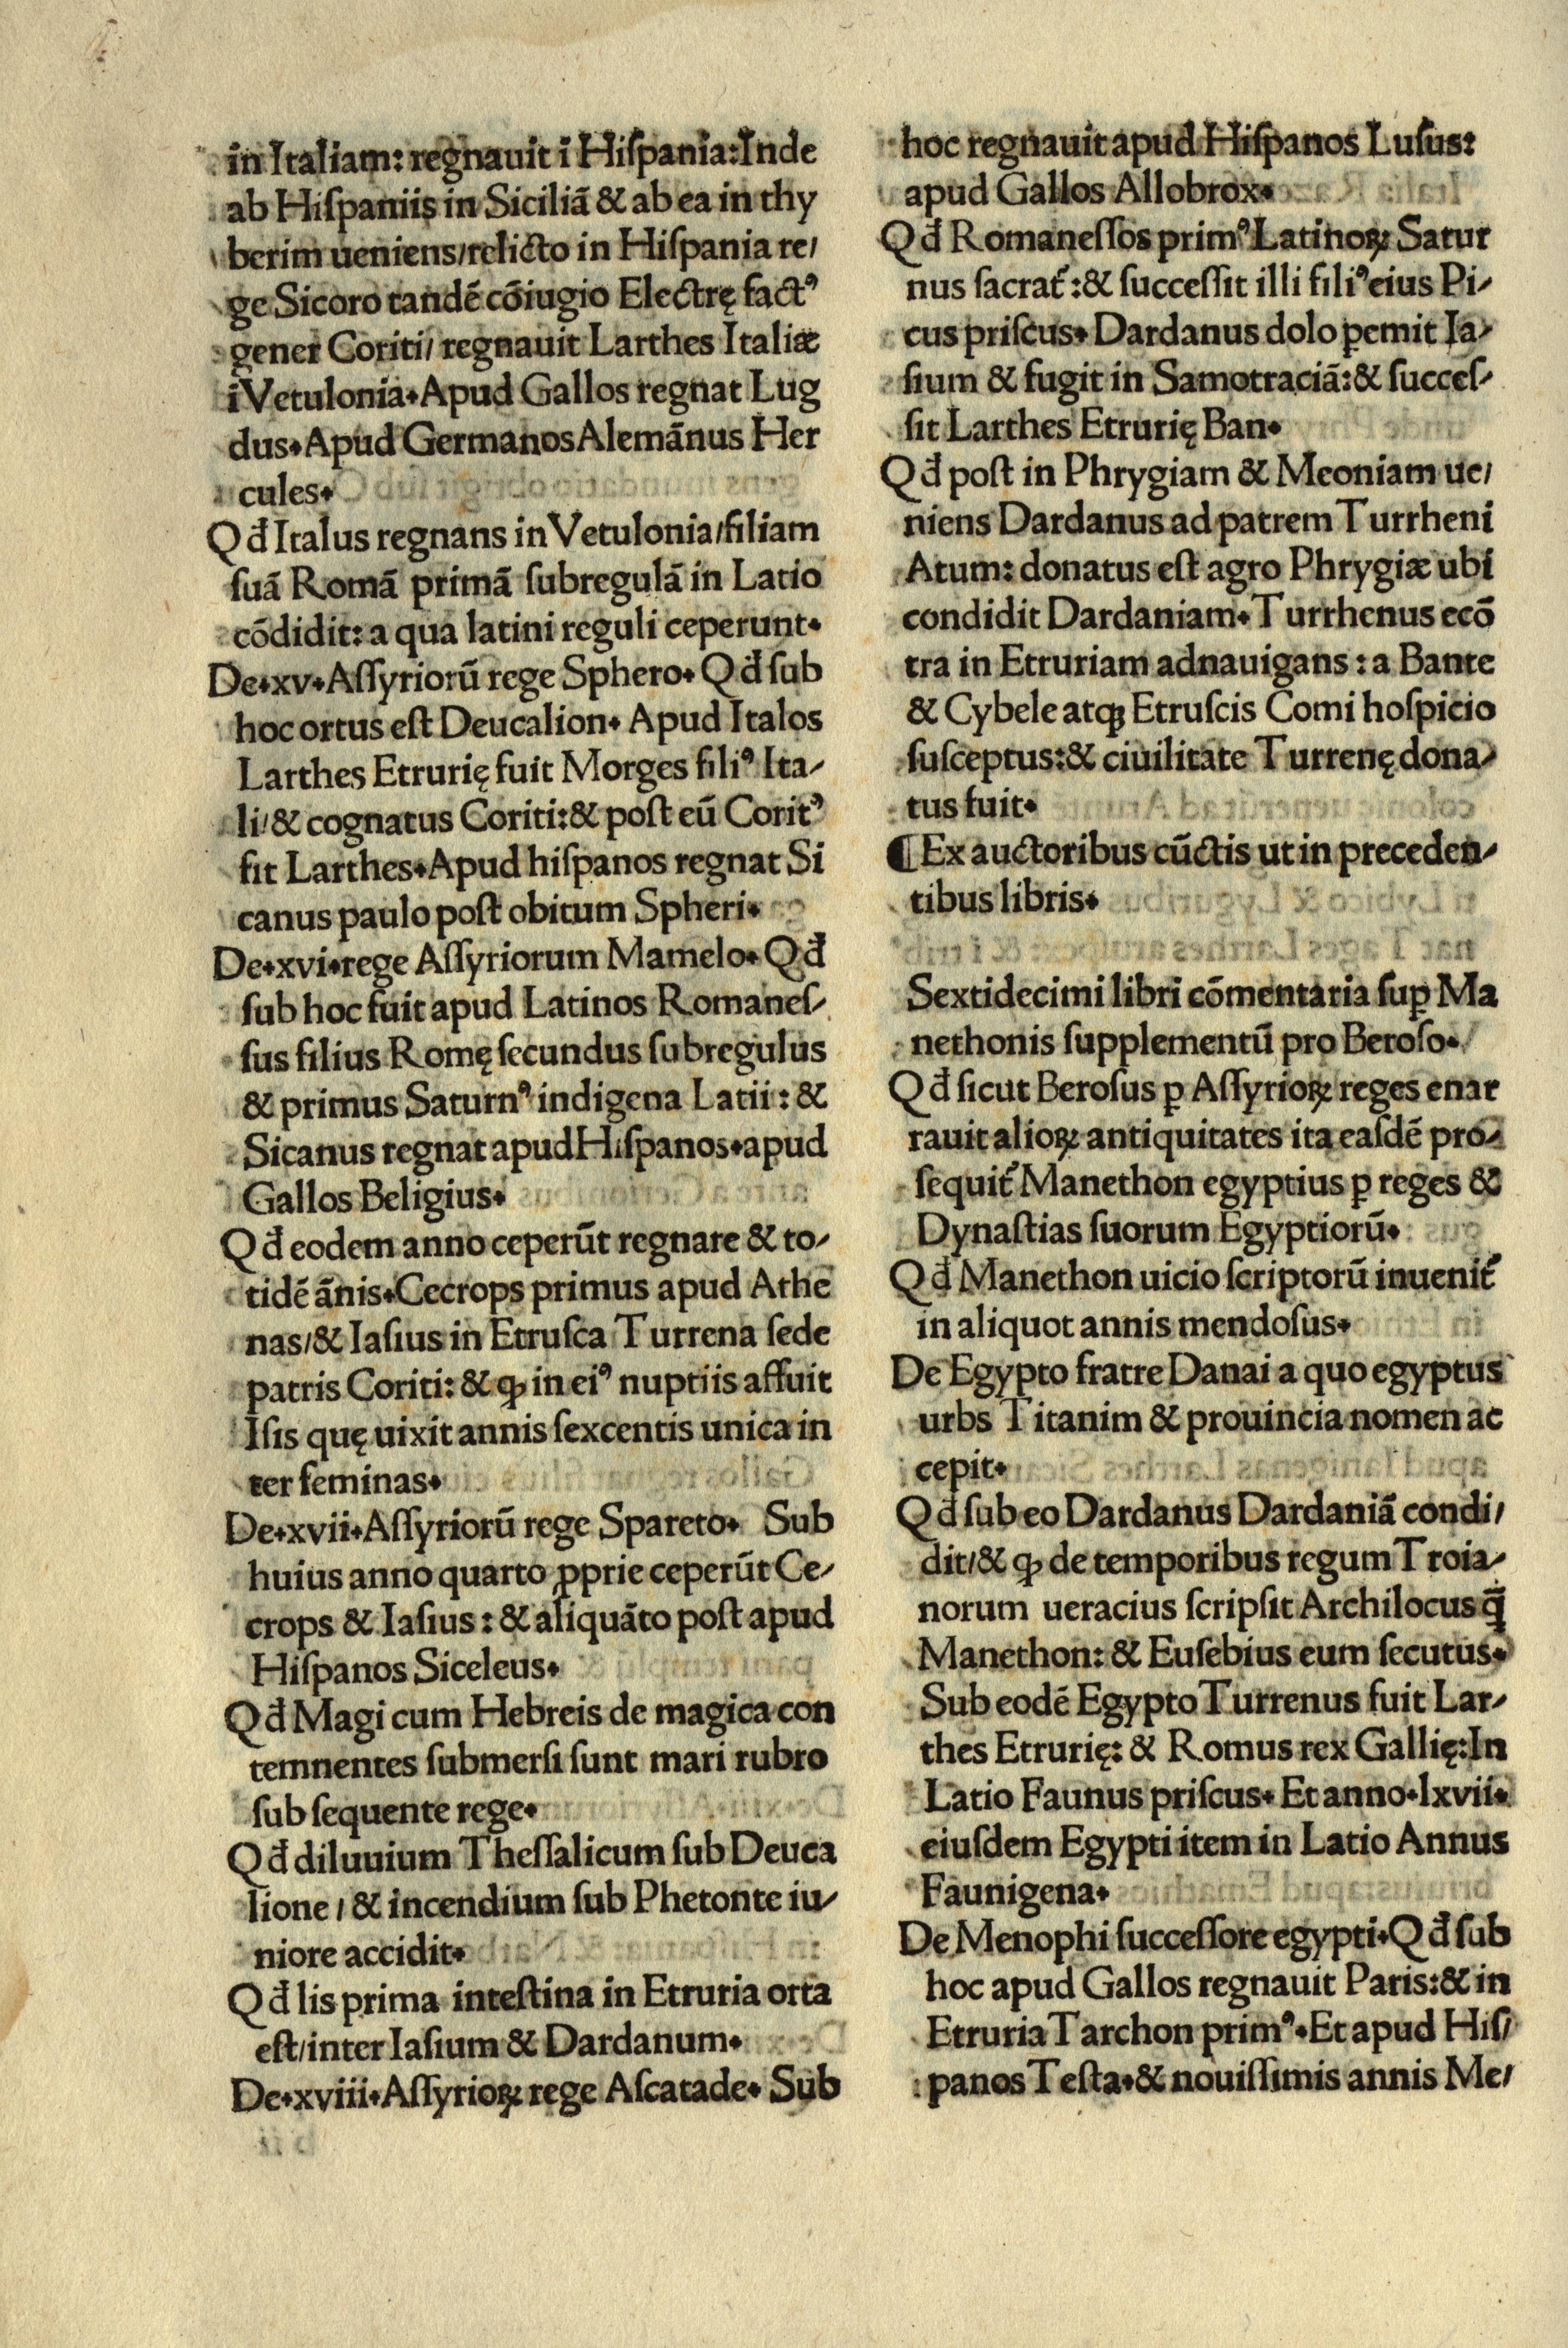 in Italiam: regnauit ī Hiſpania: Inde
ab Hiſpaniis in Siciliā & ab ea in thy
berim ueniens/relicto in Hiſpania re/
ge Sicoro tandē cōiugio Electrę factꝰ
gener Coriti/ regnauit Larthes Italiæ
ī Vetulonia. Apud Gallos regnat Lug
dus. Apud Germanos Alemānus Her
cules.
Qđ Italus regnans in Vetulonia/filiam
ſuā Romā primā ſubregulā in Latio
cōdidit: a qua latini reguli ceperunt.
De.xv.Aſſyriorū rege Sphero. Qđ ſub
hoc ortus eſt Deucalion. Apud Italos
Larthes Etrurię fuit Morges filiꝰ Ita/
li/& cognatus Coriti:& poſt eū Coritꝰ
fit Larthes. Apud hiſpanos regnat Si
canus paulo poſt obitum Spheri.
De.xvi.rege Aſſyriorum Mamelo. Qđ
ſub hoc fuit apud Latinos Romaneſ/
ſus filius Romę ſecundus ſubregulus
& primus Saturnꝰ indigena Latii: &
Sicanus regnat apud Hiſpanos.apud
Gallos Beligius.
Qđ eodem anno ceperūt regnare & to/
tidē ānis.Cecrops primus apud Athe
nas/& Iaſius in Etruſca Turrena ſede
patris Coriti: & ꝙ in eiꝰ nuptiis affuit
Iſis quę uixit annis ſexcentis unica in
ter feminas.
De.xvii.Aſſyriorū rege Spareto. Sub
huius anno quarto ꝓprie ceperūt Ce/
crops & Iaſius: & aliquāto poſt apud
Hiſpanos Siceleus.
Qđ Magi cum Hebreis de magica con
temnentes ſubmerſi ſunt mari rubro
ſub ſequente rege.
Qđ diluuium Theſſalicum ſub Deuca
lione/ & incendium ſub Phetonte iu/
niore accidit.
Qđ lis prima inteſtina in Etruria orta
eſt/inter Iaſium & Dardanum.
De.xviii.Aſſyrioꝝ rege Aſcatade. Sub
hoc regnauit apud Hiſpanos Luſus:
apud Gallos Allobrox.
Qđ Romaneſſos primꝰ Latinoꝝ Satur
nus ſacrat᷒:& ſucceſſit illi filiꝰ eius Pi/
cus priſcus. Dardanus dolo ꝑemit Ia/
ſium & fugit in Samotraciā:& ſucceſ/
ſit Larthes Etrurię Ban.
Qđ poſt in Phrygiam & Meoniam ue/
niens Dardanus ad patrem Turrheni
Atum: donatus eſt agro Phrygiæ ubi
condidit Dardaniam. Turrhenus ecō
tra in Etruriam adnauigans: a Bante
& Cybele atqꝫ Etruſcis Comi hoſpicio
ſuſceptus:& ciuilitate Turrenę dona/
tus fuit.
¶Ex auctoribus cūctis ut in preceden/
tibus libris.
Sextidecimi libri cōmentaria ſuꝑ Ma
nethonis ſupplementū pro Beroſo.
Qđ ſicut Beroſus ꝑ Aſſyrioꝝ reges enar
rauit alioꝝ antiquitates ita eaſdē pro/
ſequit᷒ Manethon egyptius ꝑ reges &
Dynaſtias ſuorum Egyptiorū.
Qđ Manethon uicio ſcriptorū inuenit᷒
in aliquot annis mendoſus.
De Egypto fratre Danai a quo egyptus
urbs Titanim & prouincia nomen ac
cepit.
Qđ ſub eo Dardanus Dardaniā condi/
dit/& ꝙ de temporibus regum Troia/
norum ueracius ſcripſit Archilocus q̄ꝫ
Manethon: & Euſebius eum ſecutus.
Sub eodē Egypto Turrenus fuit Lar/
thes Etrurię: & Romus rex Gallię: In
Latio Faunus priſcus. Et anno.lxvii.
eiuſdem Egypti item in Latio Annus
Faunigena.
De Menophi ſucceſſore egypti. Qđ ſub
hoc apud Gallos regnauit Paris:& in
Etruria Tarchon primꝰ. Et apud Hiſ/
panos Teſta.& nouiſſimis annis Me/